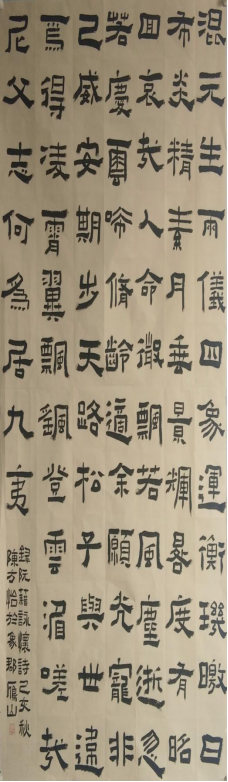 混元生兩儀四象運衡璣曒日
布炎精素月垂景輝晷度有昭
回哀哉人命微飄若風塵逝忽
若慶雲晞脩齡適余願光寵非
己威安期步天路松子與世違
焉得凌霄翼飄颻登雲湄嗟哉
尼父志何為居九夷
錄阮籍詠懷詩己亥秋
陳方怡於象郡雁山